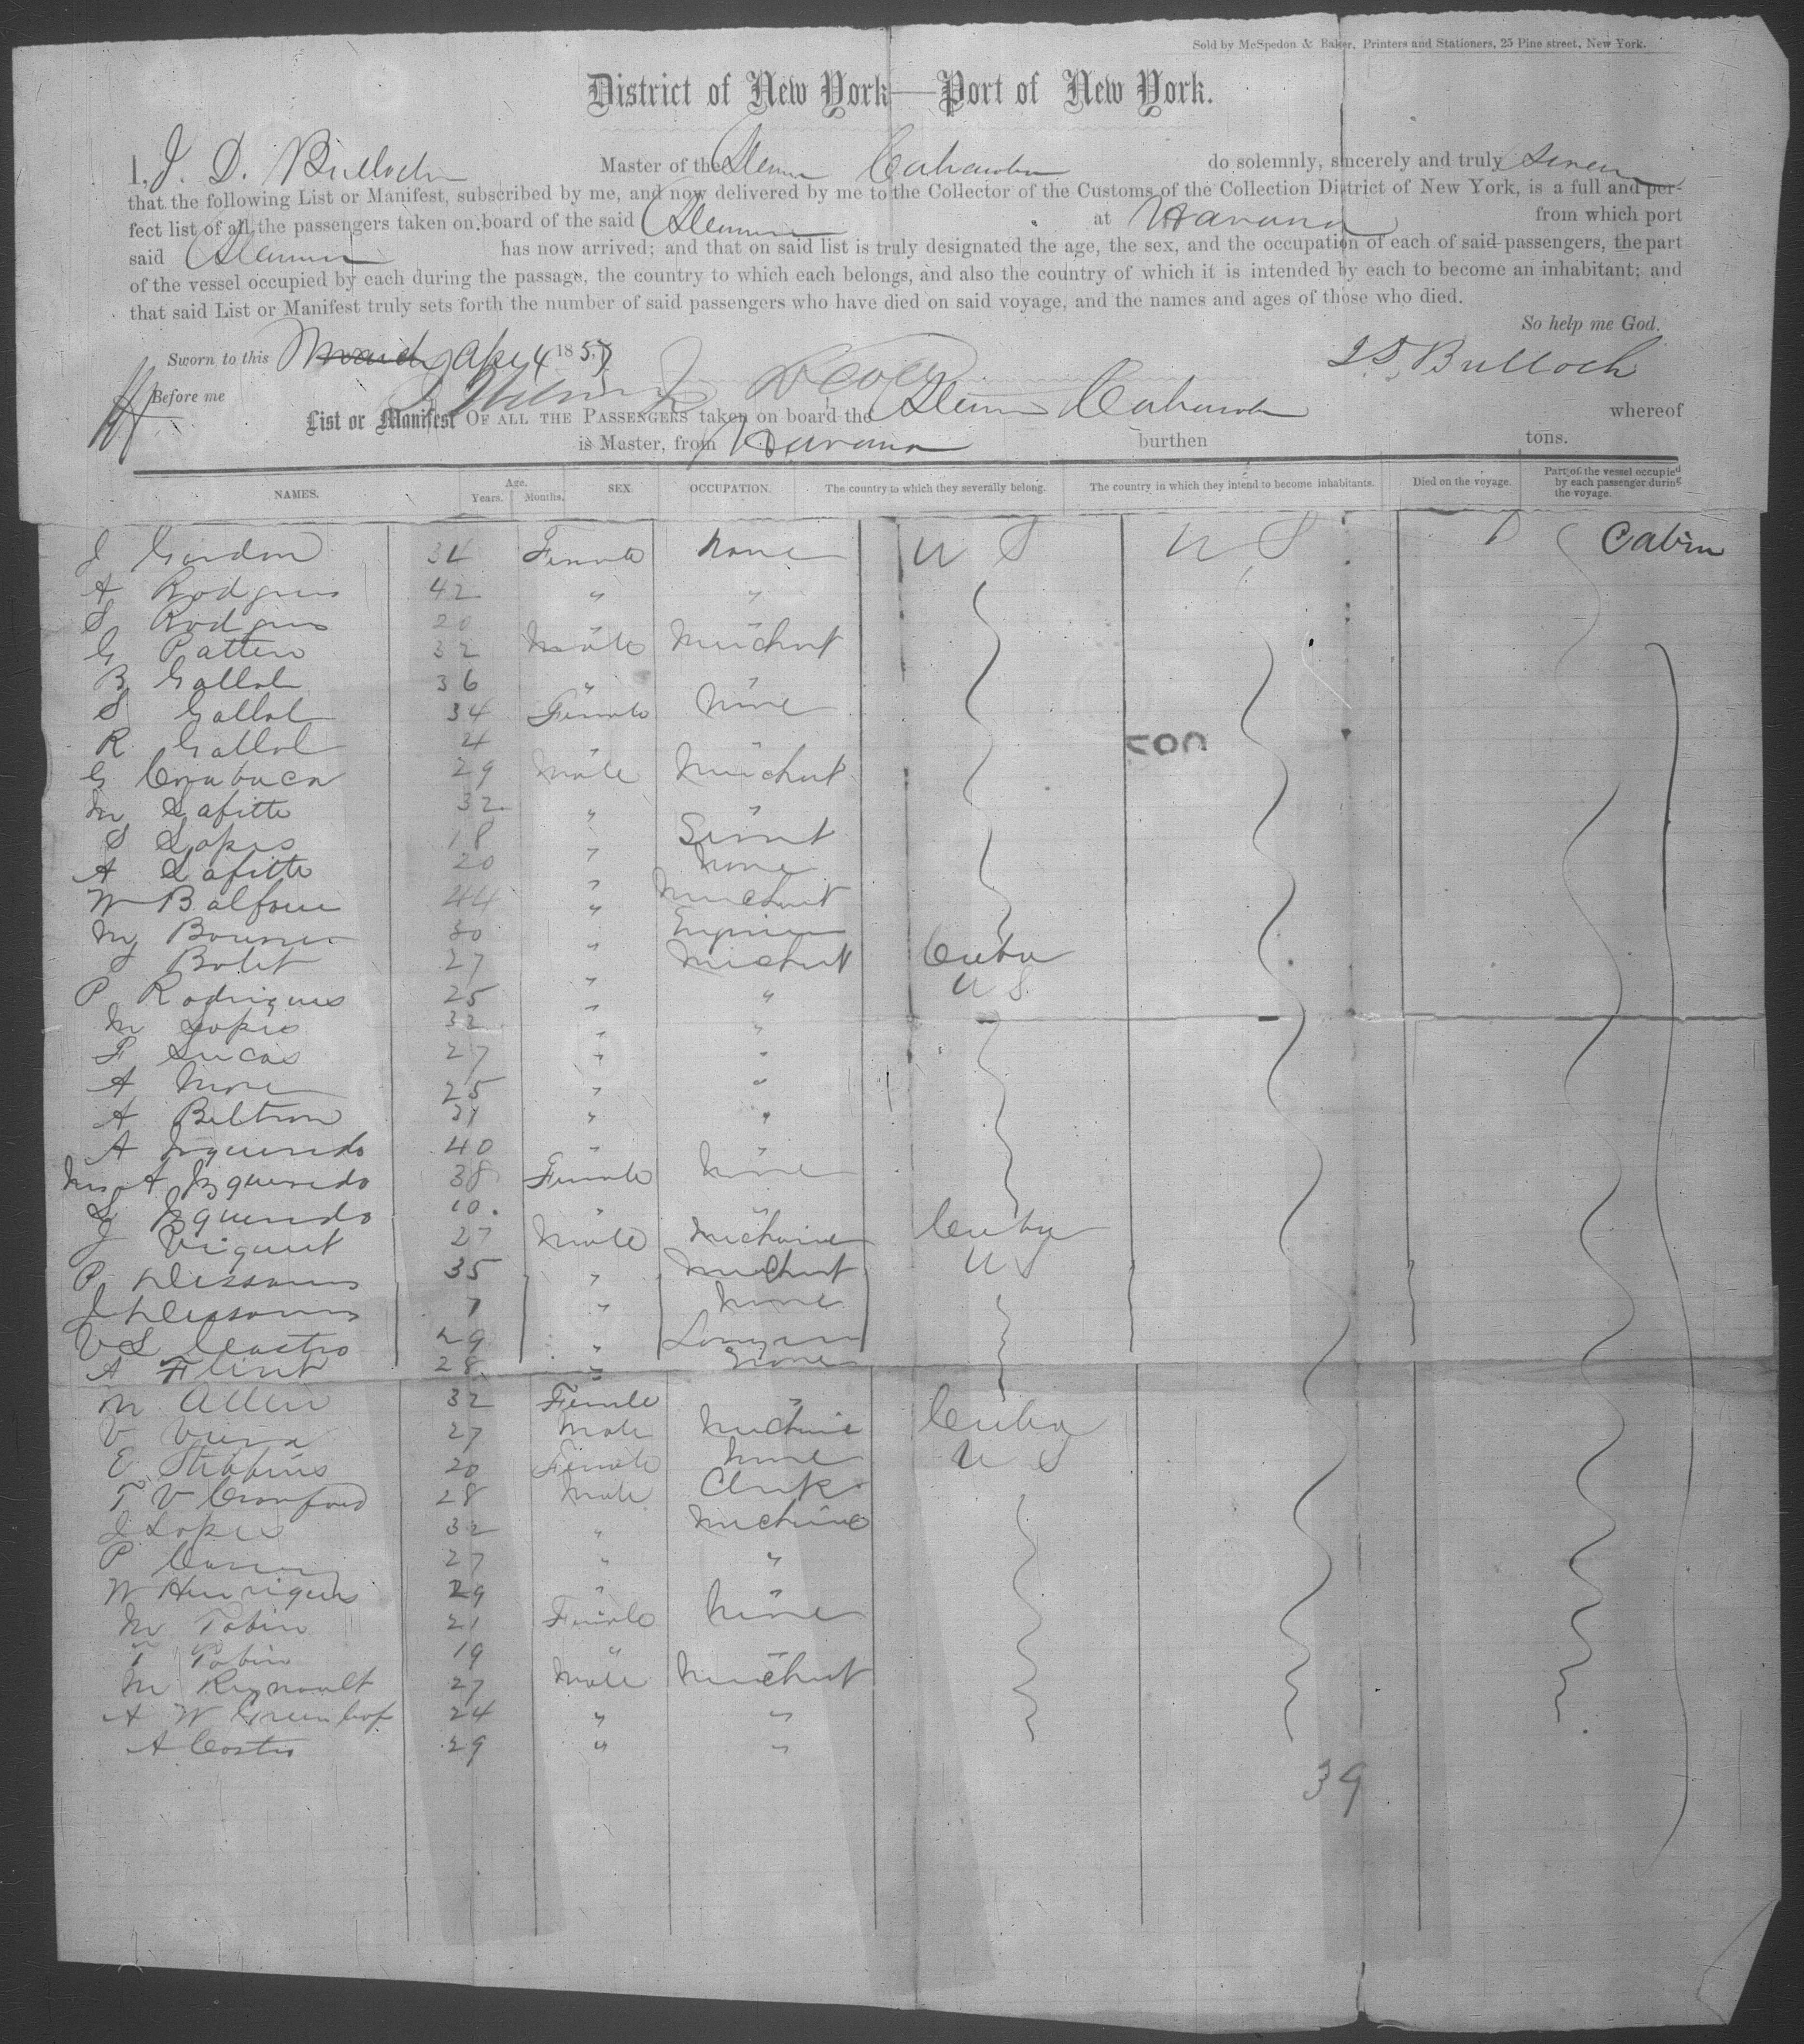 Sold by McSpedon & Baker, Printers and Stationers, 25 Pine street, New York.
District of New York—Port of New York.
I, J. D. Bulloch Master of the Steamer Cahawba do solemnly, sincerely and truly swear
that the following List or Manifest, subscribed by me, and now delivered by me to the Collector of the Customs of the Collection District of New York, is a full and per-
fect list of all the passengers taken on board of the said Steamer at Havana from which port
said Steamer has now arrived; and that on said list is truly designated the age, the sex, and the occupation of each of said passengers, the part
of the vessel occupied by each during the passage, the country to which each belongs, and also the country of which it is intended by each to become an inhabitant; and
that said List or Manifest truly sets forth the number of said passengers who have died on said voyage, and the names and ages of those who died.
So help me God.
Sworn to this March Apl 4 1857 J D Bulloch
Before me
List or Manifest OF ALL THE PASSENGERS taken on board the Steamer Cahawba whereof
is Master, from Havana burthen tons.
NAMES. Age. Years. Months. SEX. OCCUPATION. The country to which they severally belong. The country in which they intend to become inhabitants. Died on the voyage. Part of the vessel occupied by each passenger during the voyage.
J Gordon 34 Female None U S U S Cabin
A Rodgers 42 " "
S Rodgers 20 " "
G Patten 32 Male Merchant
B Gallol 36 " "
S Gallol 34 Female None
R Gallol 4 " "
G 29 Male Merchant
M Lafitte 32 " "
S Lopes 18 " Servt
A Lafitte 20 " None
W Balfour 44 " Merchant
M 30 " Engineer
J Bolet 27 " Merchant Cuba
P Rodrigues 25 " " U S
M Lopes 32 " "
F Lucas 27 " "
A More 25 " "
A Beltron 31 " "
A Izquerido 40 " "
Mrs A Izquerido 38 Female None
L Izquerido 10 " "
J Viquert 27 Male Mechanic Cuba
P 35 " Merchant U S
J 7 " None
V S Castro 29 "
A Flint 28 " None
M Allen 32 Female "
V 27 Male Mechanic Cuba
E Stebbins 20 Female None U S
T V Crawford 28 Male Clerk
J Lopes 32 " Mechanic
P 27 " "
W Henriques 29 " "
M Tobin 21 Female None
T Tobin 19 " "
M Reynault 27 Male Merchant
A W 24 " "
A Castro 29 " "
39